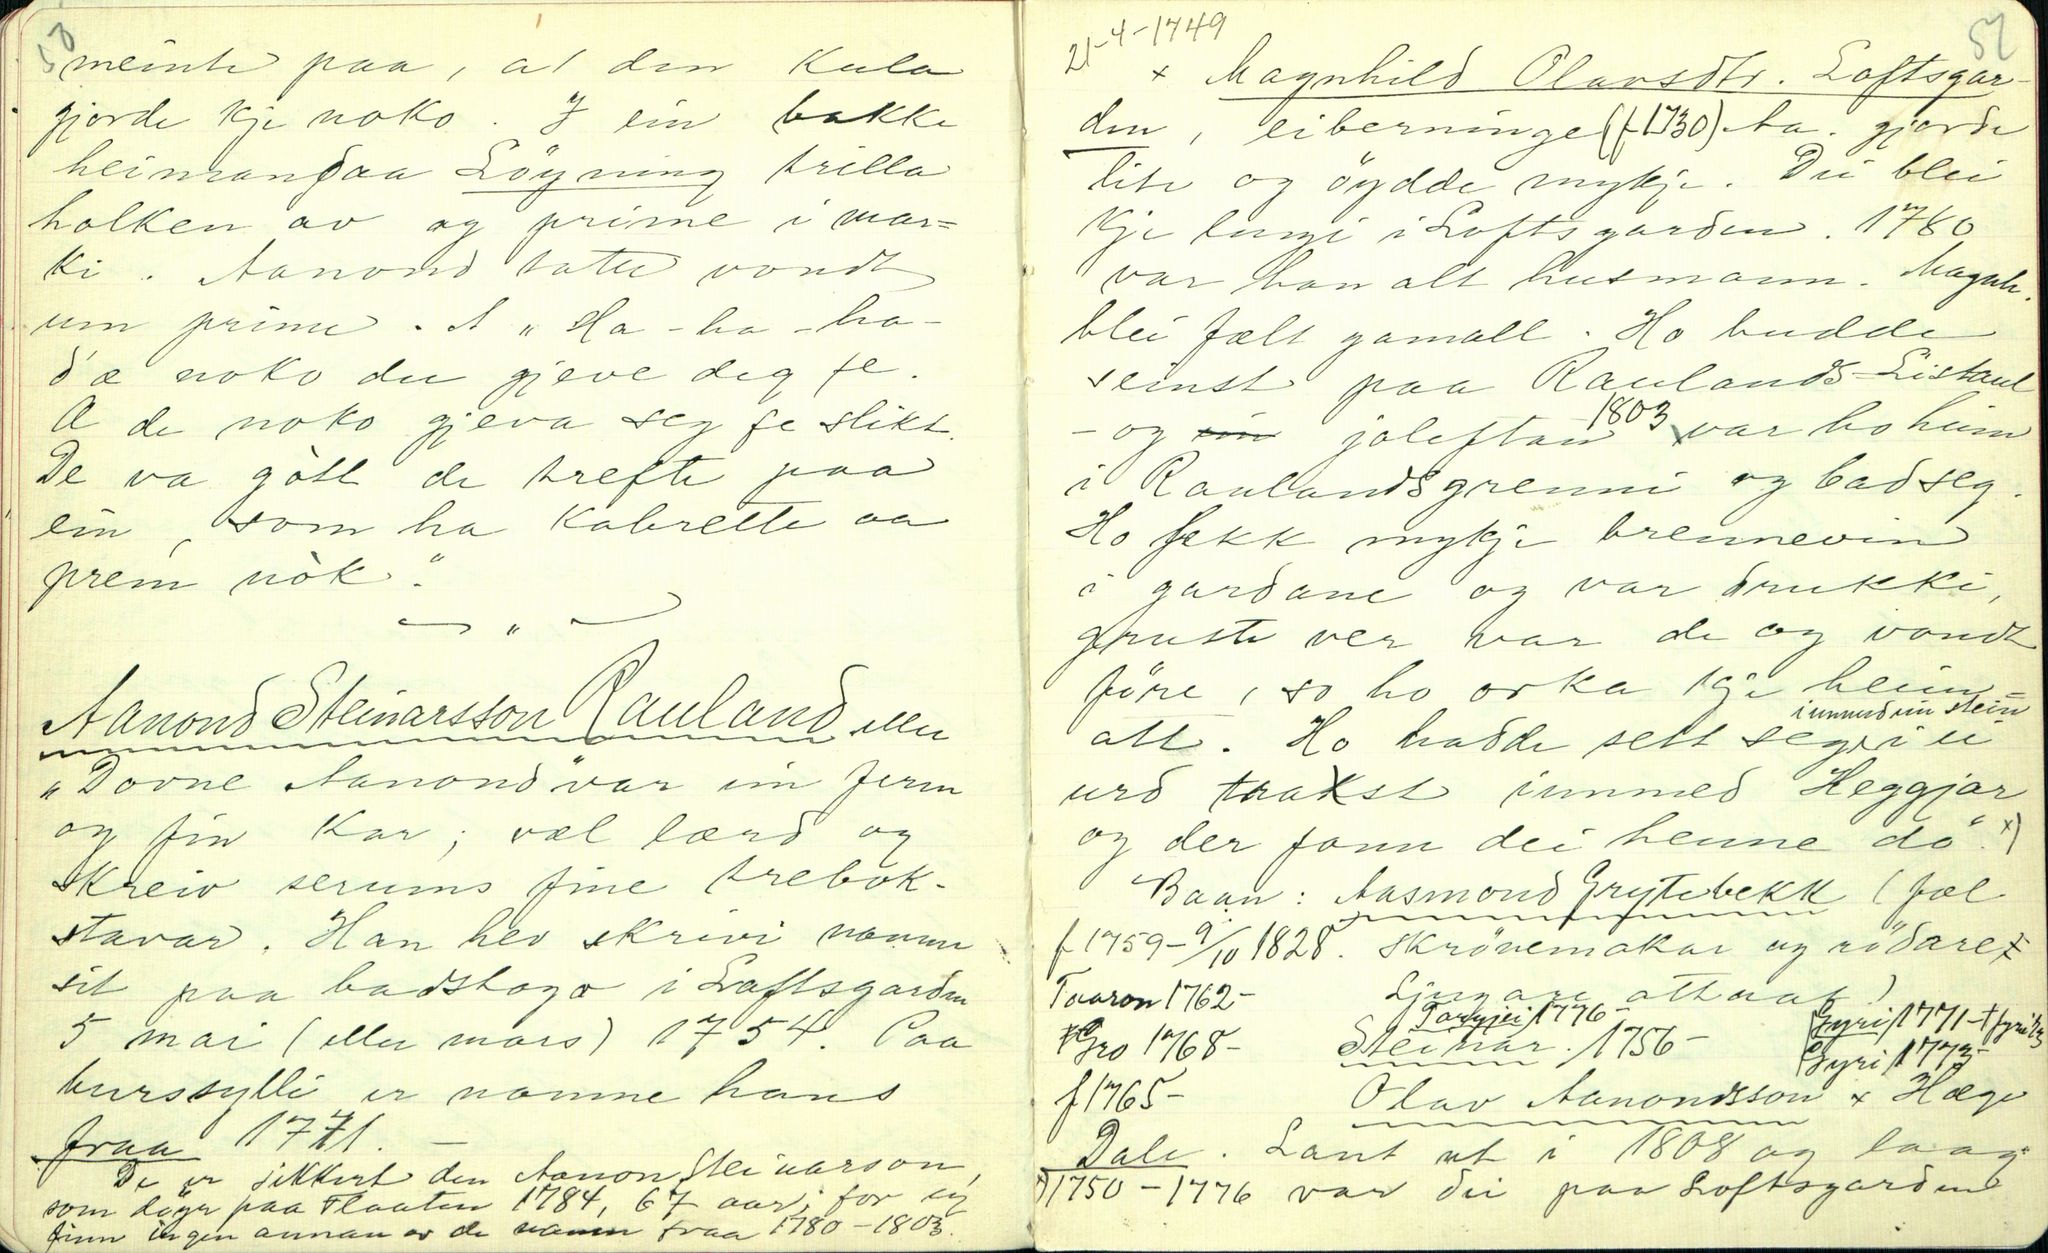 50
meinte paa, at den kula
gjorde kje noko. I ein bakke
heimanfaa Løyning trilla
holken av og prime i mar=
ki. Aanond totte vondt
um prime. A "Ha-ha-ha-
d'æ noko du gjeve deg fe.
A de noko gjeva seg fe slikt.
De va gòtt de trefte paa
ein, som ha kabrette aa
prem nòk."
— " —
Aanond Steinarsson Rauland eller
"Dovne Aanond" var ein ferm
og fin kar; væl lærd og
skreiv serums fine trebok-
stavar. Han hev skrivi namne
sit paa badstoga i Loftsgarden
5 mai (eller mars) 1754. Paa
burssylli er namne hans
fraa 1771. —
De er sikkert den Aanon Steinarson,
som døyr paa Flaaten 1784, 67 aar, for eg
finn ingen annan av de namn fraa 1780-1803.
51
21-4-1749
x Magnhild Olavsdtr. Loftsgar-
den, eiberninge (f 1730) Aa. gjorde
lite og øydde mykje. Dei blei
kje lengi i Loftsgarden. 1780
var han alt husmann. Magnh.
blei fælt gamall. Ho budde
seinst paa Raulands-Listaul
- og ein joleftan 1803 var ho heim
i Raulandsgrenni og bad seg.
Ho fekk mykje brennevin
i gardane og var drukki,
gruste ver var de og vondt
føre, so ho orka kje heim=
att. Ho hadde sett seg i ei
innunder ein stein
urd trakst innmed Heggjar
og der fann dei henne dø". x)
Baan: Aasmond Grytebekk (fæl
f 1759 - 9/10 1828. skrønemakar og rødare
Taaron 1762- Ljugare attaat)
Torgjei 1776-
Gro 1768- Steinar 1756- Gyri 1771-
Gyri 1773-
f 1765- Olav Aanondsson x Hæge
Dale. Lant ut i 1808 og laag
x) 1750-1776 var dei paa Loftsgarden